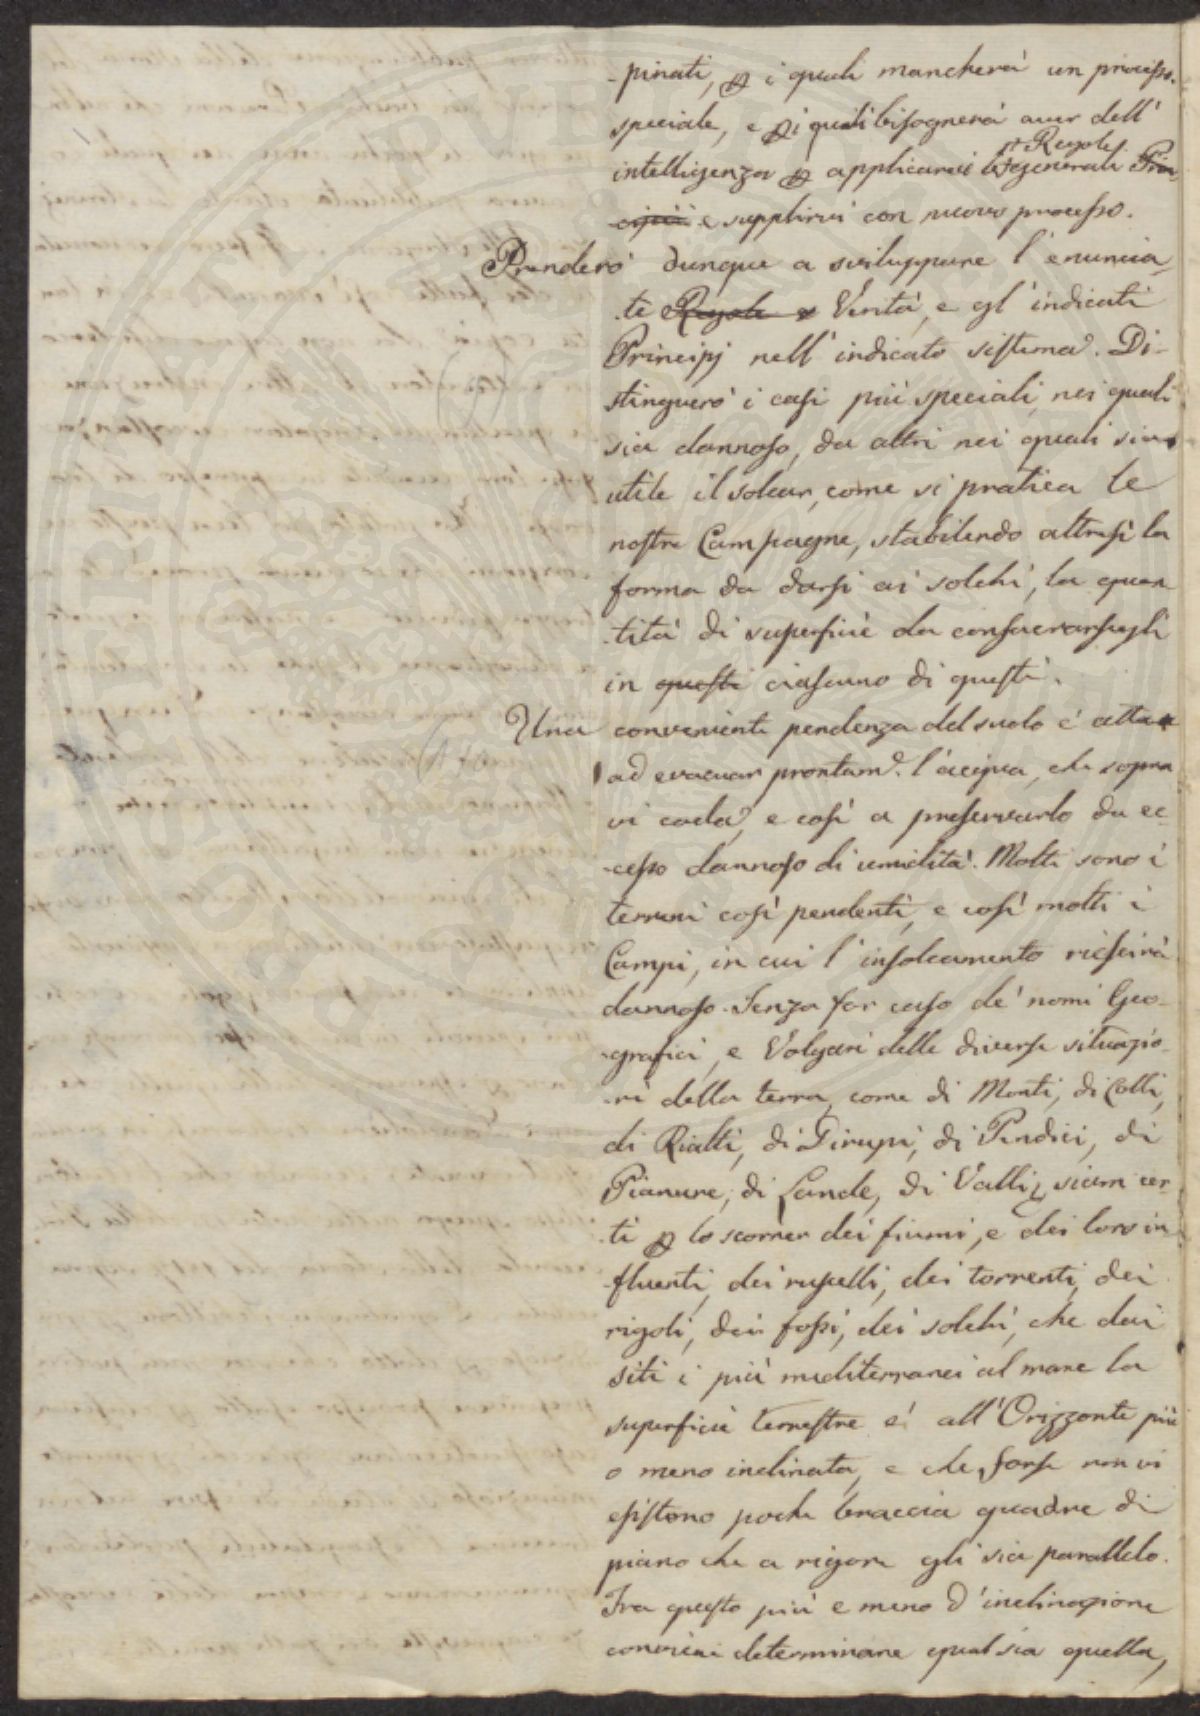 -pinati, p i quali mancherà un processo
speciale, e p i quali bisognerà aver dell'
intelligenza p applicarvi le Regole generali Prin-
cipii e supplirvi con nuovo processo.
Prenderò dunque a sviluppare l'enuncia-
-te Regole e Verità, e gl'indicati
Principj nell'indicato sistema. Di-
stinguerò i casi più speciali, nei quali
sia dannoso, da altri nei quali sia
utile il solcar, come si pratica le
nostre Campagne, stabilendo altresì la
forma da darsi ai solchi, la quan-
-tità di superficie da consacrarsegli
in questi ciascuno di questi.
Una conveniente pendenza del suolo è atta
ad evacuar prontam.e l'acqua, che sopra
vi cada, e così a preservarlo da ec-
-cesso dannoso di umidità. Molti sono i
terreni così pendenti, e così molti i
Campi, in cui l'insolcamento riescirà
dannoso. Senza far caso de' nomi Geo-
-grafici, e Volgari delle diverse situazio-
-ni della terra, come di Monti, di Colli,
di Rialti, di Dirupi, di Pendici, di
Pianure, di Lande, di Valli, siam cer-
-ti p lo scorrer dei fiumi, e dei loro in-
-fluenti, dei ruscelli, dei torrenti, dei
rigoli, dei fossi, dei solchi, che dai
siti i più mediterranei al mare la
superficie terrestre è all'Orizzonte più
o meno inclinata, e che forse non vi
esistono poche braccia quadre di
piano che a rigore gli sia parallelo.
Fra questo più e meno d'inclinazione
conviene determinare qual sia quella,